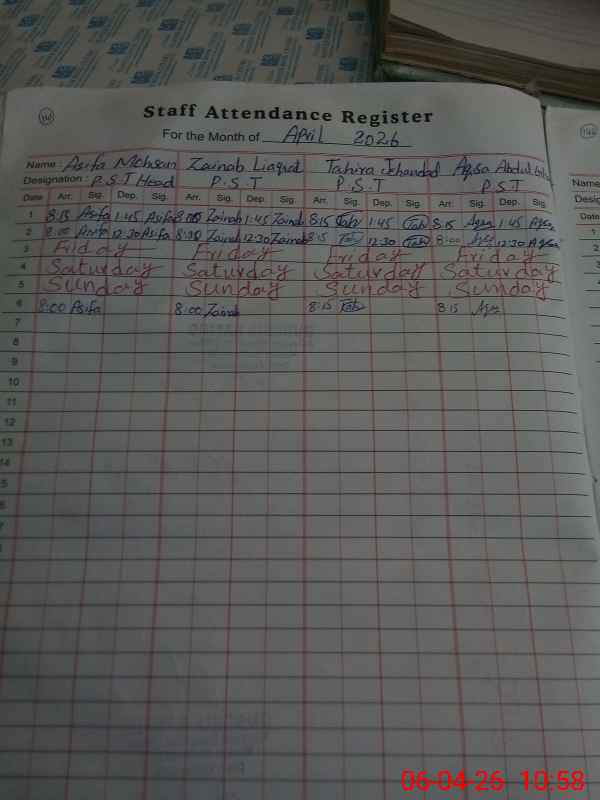 Staff Attendance Register
For the Month of April 2026
Name: Asifa Mohsan Zainab Liaqat Tahira Jehandad Aqsa Abdul
Designation: P.S.T Head P.S.T P.S.T P.S.T
Date Arr. Sig. Dep. Sig. Arr. Sig. Dep. Sig. Arr. Sig. Dep. Sig. Arr. Sig. Dep. Sig.
1 8:15 Asifa 1:45 Asifa 8:00 Zainab 1:45 Zainab 8:15 Tah 1:45 Tah 8:15 Aqsa 1:45 Aqsa
2 8:00 Asifa 12:30 Asifa 8:30 Zainab 12:30 Zainab 8:15 Tah 12:30 Tah 8:00 Aqsa 12:30 Aqsa
3 Friday Friday Friday Friday
4 Saturday Saturday Saturday Saturday
5 Sunday Sunday Sunday Sunday
6 8:00 Asifa 8:00 Zainab 8:15 Tah 8:15 Aqsa
7
8
9
10
11
12
13
14
Name
Date
1
2
3
4
5
6
06-04-26 10:58